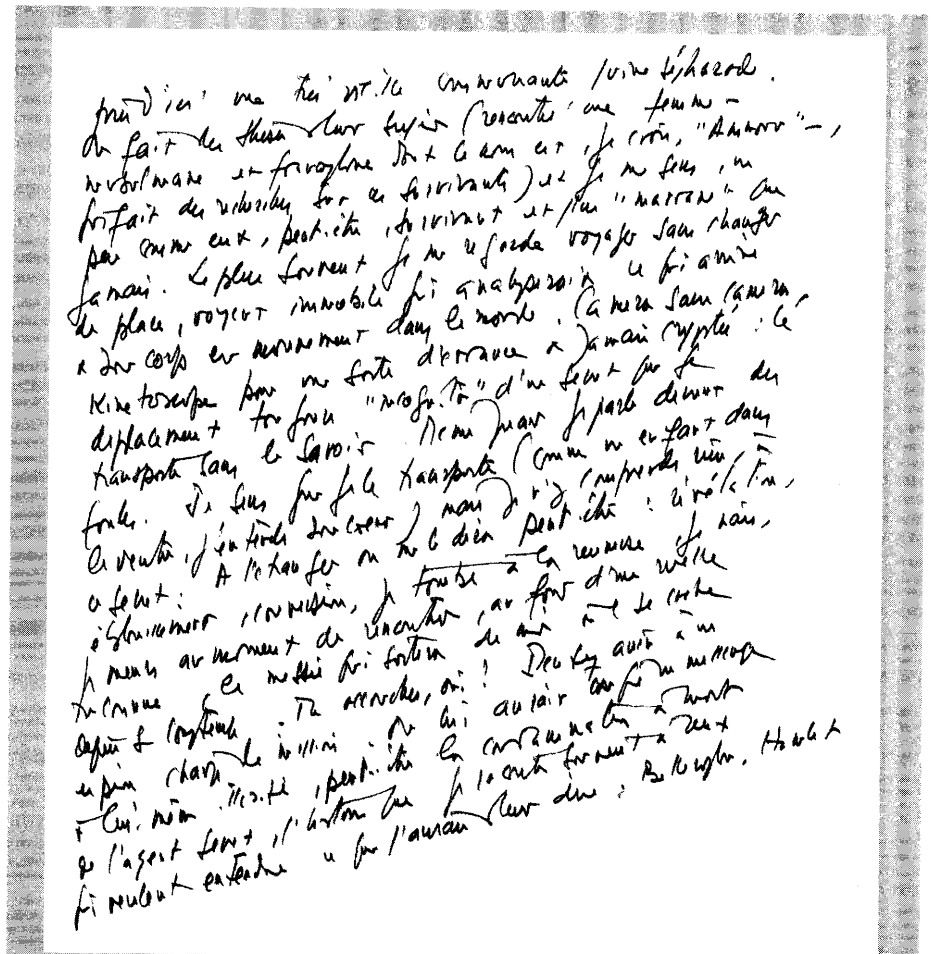 près d'ici une très vieille communauté juive sépharade.
On fait des thèses sur leur sujet (rencontré une femme –
musulmane et francophone dont le nom est, je crois, "Ammour" –,
qui fait des recherches sur ces survivants) et je me sens, un
peu comme eux, peut-être, survivant et plus "marrane" que
jamais. Le plus souvent je me regarde voyager sans changer
de place, voyeur immobile qui analyserait ce qui arrive
à son corps en mouvement dans le monde. Caméra sans caméra,
kinétoscope pour une sorte d'errance à jamais cryptée : le
déplacement toujours "incognito" d'un secret que je
transporte sans le savoir. Même quand je parle devant des
foules. Je sens que je le transporte (comme un enfant dans
le ventre, j'entends son cœur) mais je n'y comprends rien, à
ce secret. A l'étranger on me le dira peut-être : révélation,
éblouissement, conversion, je tombe à la renverse, je nais,
je meurs au moment de rencontrer, au fond d'une ruelle
inconnue le messie qui sortira de moi où il se cache
depuis si longtemps. Tu accouches, oui ! Devenez avis à un
espion chargé de mission : on lui aurait confié un message
à lui-même illisible, peut-être la condamnation à mort
de l'agent secret, l'histoire que je raconte souvent à ceux
qui veulent entendre ce que j'aurais leur dire : Bellerophon, Hamlet